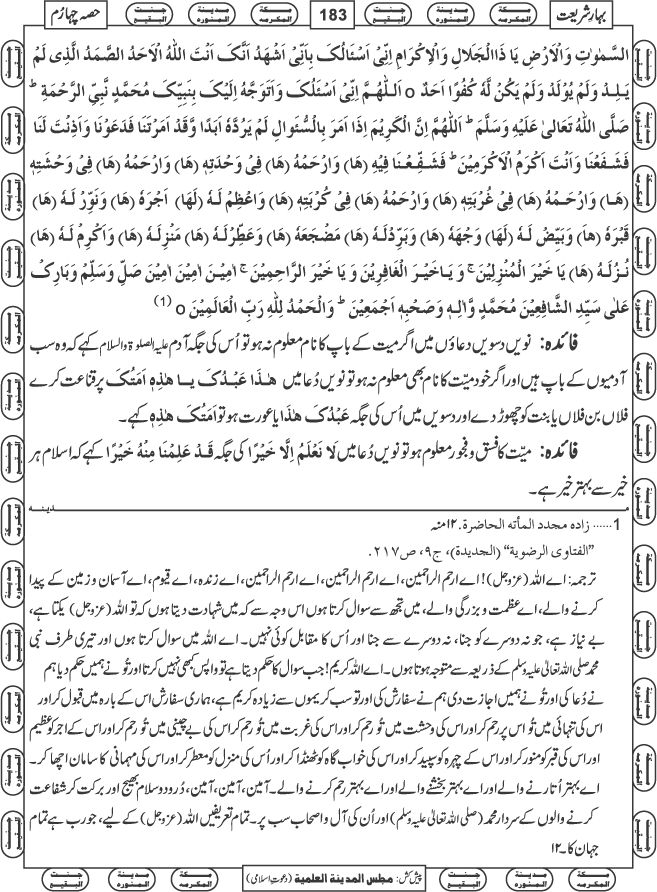 بہارِشریعت
مدینۃ المنورہ
مکۃ المکرمہ
183
مدینۃ المنورہ
جنت البقیع
حصہ چہارم
السَّمٰوٰتِ وَالْاَرْضِ یَا ذَاالْجَلَالِ وَالْاِکْرَامِ اِنِّیْ اَسْئَالُکَ بِاَنِّیْ اَشْھَدُ اَنَّکَ اَنْتَ اللّٰہُ الْاَحَدُ الصَّمَدُ الَّذِی لَمْ
یَـلِـدْ وَلَمْ یُوْلَدْ وَلَمْ یَکُنْ لَّہٗ کُفُوًا اَحَدٌ o اَللّٰھُمَّ اِنِّیْ اَسْئَلُکَ وَاَتَوَجَّہُ اِلَیْکَ بِنَبِیِّکَ مُحَمَّدٍ نَّبِیِّ الرَّحْمَۃِ ؕ
صَلَّی اللّٰہُ تَعَالٰی عَلَیْہِ وَسَلَّمَ ؕ اَللّٰھُمَّ اِنَّ الْکَرِیْمَ اِذَا اَمَرَ بِالسُّئوَالِ لَمْ یَرُدَّہٗ اَبَدًا وَّقَدْ اَمَرْتَنَا فَدَعَوْنَا وَاَذِنْتَ لَنَا
فَشَفَعْنَا وَاَنْتَ اَکْرَمُ الْاَکْرَمِیْنَ ؕ فَشَـفِّعْنَا فِیْہِ (ھَا) وَارْحَمْہُ (ھَا) فِیْ وَحْدَتِہٖ (ھَا) وَارْحَمْہُ (ھَا) فِیْ وَحْشَتِہٖ
(ھَـا) وَارْحَمْـہُ (ھَا) فِیْ غُرْبَتِہٖ (ھَا) وَارْحَمْہُ (ھَا) فِیْ کُرْبَتِہٖ (ھَا) وَاعْظِمْ لَـہٗ (لَھَا) اَجْرَہٗ (ھَا) وَنَوِّرْ لَـہٗ (ھَا)
قَبْرَہٗ (ھَا) وَبَیِّضْ لَـہٗ (لَھَا) وَجْھَہٗ (ھَا) وَبَرِّدْلَـہٗ (ھَا) مَضْجَعَہٗ (ھَا) وَعَطِّرْلَـہٗ (ھَا) مَنْزِلَـہٗ (ھَا) وَاَکْرِمْ لَـہٗ (ھَا)
نُـزُلَـہٗ (ھَا) یَا خَیْرَ الْمُنْزِلِیْنَ ۚ وَ یَاخَیْرَ الْغَافِرِیْنَ وَ یَا خَیْرَ الرَّاحِمِیْنَ ۚ اٰمِیْنَ اٰمِیْنَ اٰمِیْنَ صَلِّ وَسَلِّمْ وَبَارِکْ
عَلٰی سَیِّدِ الشَّافِعِیْنَ مُحَمَّدٍ وَّاٰلِـہٖ وَصَحْبِہٖ اَجْمَعِیْنَ ؕ وَالْحَمْدُ لِلّٰہِ رَبِّ الْعَالَمِیْنَ o (1)
فائدہ: نویں دسویں دعاؤں میں اگر میت کے باپ کا نام معلوم نہ ہو تو اُس کی جگہ آدم علیہ الصلوۃ والسلام کہے کہ وہ سب
آدمیوں کے باپ ہیں اور اگر خود میّت کا نام بھی معلوم نہ ہو تو نویں دُعا میں ھٰـذَا عَبْـدُکَ یَـا ھٰـذِہٖ اَمَتُکَ پر قناعت کرے
فلاں بن فلاں یا بنت کو چھوڑ دے اور دسویں میں اُس کی جگہ عَبْدُکَ ھٰذَا یا عورت ہو تو اَمَتُکَ ھٰذِہٖ کہے۔
فائدہ: میّت کا فسق و فجور معلوم ہو تو نویں دُعا میں لَا نَعْلَمُ اِلَّا خَیْرًا کی جگہ قَـدْ عَلِمْنَا مِنْہُ خَیْرًا کہے کہ اسلام ہر
خیر سے بہتر خیر ہے۔
مدینہ
1...... زادہ مجدد المأتہ الحاضرۃ. ۱۲ منہ
’’الفتاوی الرضویۃ‘‘ (الجدیدۃ)، ج۹، ص۲۱۷.
ترجمہ: اے اللہ (عزوجل)! اے ارحم الراحمین، اے ارحم الراحمین، اے ارحم الراحمین، اے زندہ، اے قیوم، اے آسمان و زمین کے پیدا
کرنے والے، اے عظمت و بزرگی والے، میں تجھ سے سوال کرتا ہوں اس وجہ سے کہ میں شہادت دیتا ہوں کہ تو اللہ (عزوجل) یکتا ہے،
بے نیاز ہے، جو نہ دوسرے کو جنا، نہ دوسرے سے جنا اور اُس کا مقابل کوئی نہیں۔ اے اللہ میں سوال کرتا ہوں اور تیری طرف نبی
محمد صلی اللہ تعالیٰ علیہ وسلم کے ذریعہ سے متوجہ ہوتا ہوں۔ اے اللہ کریم! جب سوال کا حکم دیتا ہے تو واپس کبھی نہیں کرتا اور تُو نے ہمیں حکم دیا ہم
نے دُعا کی اور تُو نے ہمیں اجازت دی ہم نے سفارش کی اور تو سب کریموں سے زیادہ کریم ہے، ہماری سفارش اس کے بارہ میں قبول کر اور
اس کی تنہائی میں تُو اس پر رحم کر اور اس کی وحشت میں تُو رحم کر اور اس کی غربت میں تُو رحم کر اس کی بے چینی میں تُو رحم کر اور اس کے اجر کو عظیم
اور اس کی قبر کو منور کر اور اس کے چہرہ کو سپید کر اور اس کی خواب گاہ کو ٹھنڈا کر اور اُس کی منزل کو معطر کر اور اس کی مہمانی کا سامان اچھا کر۔
اے بہتر اُتارنے والے اور اے بہتر بخشنے والے اور اے بہتر رحم کرنے والے۔ آمین، آمین، آمین، دُرود و سلام بھیج اور برکت کر شفاعت
کرنے والوں کے سردار محمد (صلی اللہ تعالیٰ علیہ وسلم) اور اُن کی آل و اصحاب سب پر۔ تمام تعریفیں اللہ (عزوجل) کے لیے، جو رب ہے تمام
جہان کا۔ ۱۲
جنت البقیع
مدینۃ المنورہ
مکۃ المکرمہ
پیش کش: مجلس المدینۃ العلمیۃ (دعوتِ اسلامی)
مکۃ المکرمہ
مدینۃ المنورہ
جنت البقیع